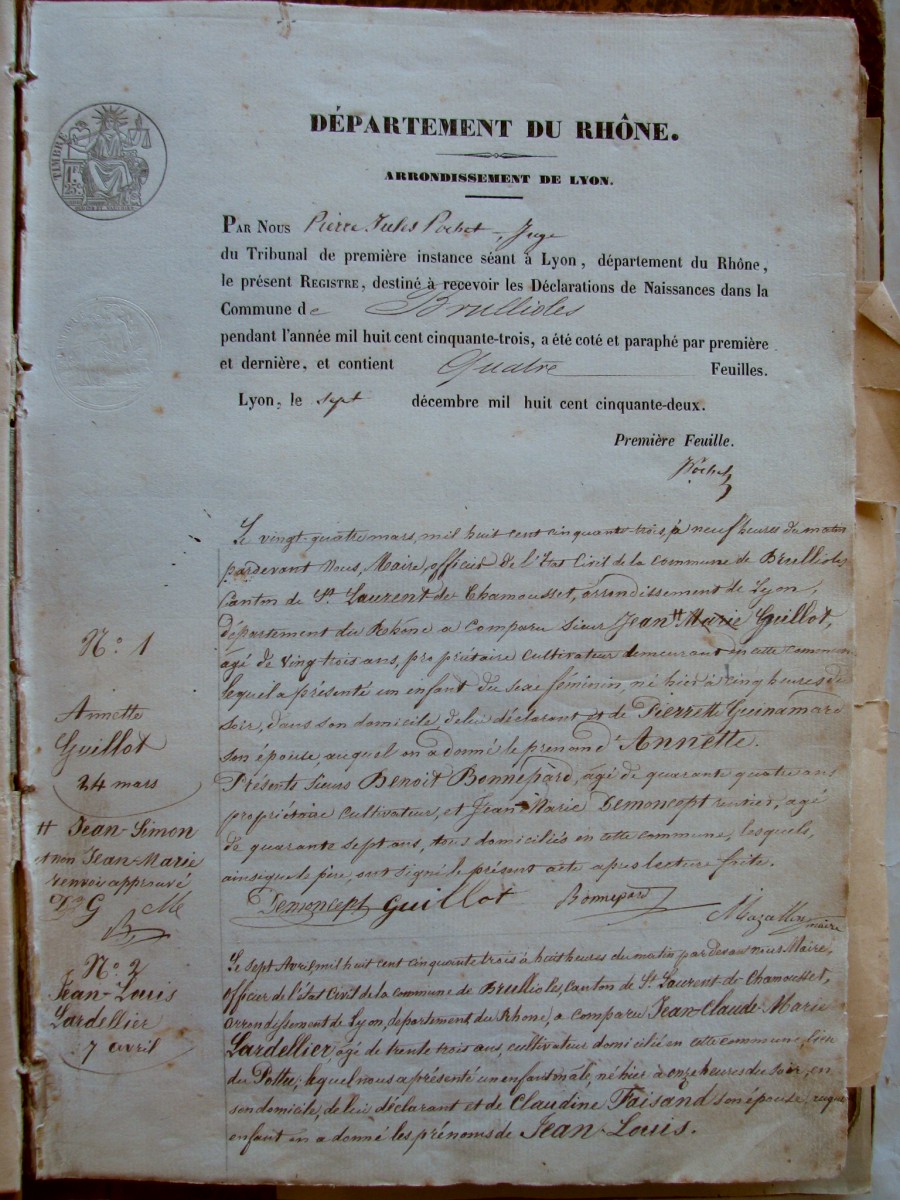 TIMBRE
1F.
25C.
DÉPARTEMENT DU RHÔNE.
ARRONDISSEMENT DE LYON.
PAR NOUS Pierre Jules Pochet, Juge
du Tribunal de première instance séant à Lyon, département du Rhône,
le présent REGISTRE, destiné à recevoir les Déclarations de Naissances dans la
Commune de Brullioles
pendant l'année mil huit cent cinquante-trois, a été coté et paraphé par première
et dernière, et contient Quatre Feuilles.
Lyon, le sept décembre mil huit cent cinquante-deux.
Première Feuille.
Pochet
Le vingt-quatre mars, mil huit cent cinquante-trois, à neuf heures du matin
pardevant Nous, Maire, officier de l'Etat Civil de la commune de Brullioles
Canton de St. Laurent de Chamousset, arrondissement de Lyon,
département du Rhône a Comparu Sieur Jean tt Marie Guillot,
agé de vingt trois ans, propriétaire Cultivateur demeurant en cette commune
lequel a présenté un enfant du sexe féminin, né hier à cinq heures du
soir, dans son domicile de lui déclarant et de Pierrette Guinamard
son épouse, auquel on a donné le prénom d'Annette.
Présents sieurs Benoit Bonnepard, agé de quarante quatre ans
propriétaire cultivateur, et Jean Marie Demoncept rentier, agé
de quarante sept ans, tous domiciliés en cette commune, lesquels,
ainsi que le père, ont signé le présent acte après lecture faite.
Demoncept Guillot Bonnepard
maire
N.o 1
Annette
Guillot
24 mars
tt Jean-Simon
et non Jean-Marie
renvoi approuvé
G M
N.o 2
Jean-Louis
Lardellier
7 avril
Le sept Avril mil huit cent cinquante trois à huit heures du matin par devant nous Maire,
officier de l'Etat Civil de la Commune de Brullioles, Canton de St. Laurent-de-Chamousset,
arrondissement de Lyon, département du Rhône, a comparu Jean-Claude-Marie
Lardellier agé de trente trois ans, cultivateur domicilié en cette commune, lieu
du, lequel nous a présenté un enfant mâle, né hier à onze heures du soir, en
son domicile, de lui déclarant et de Claudine Faisand son épouse, auquel
enfant on a donné les prénoms de Jean-Louis.